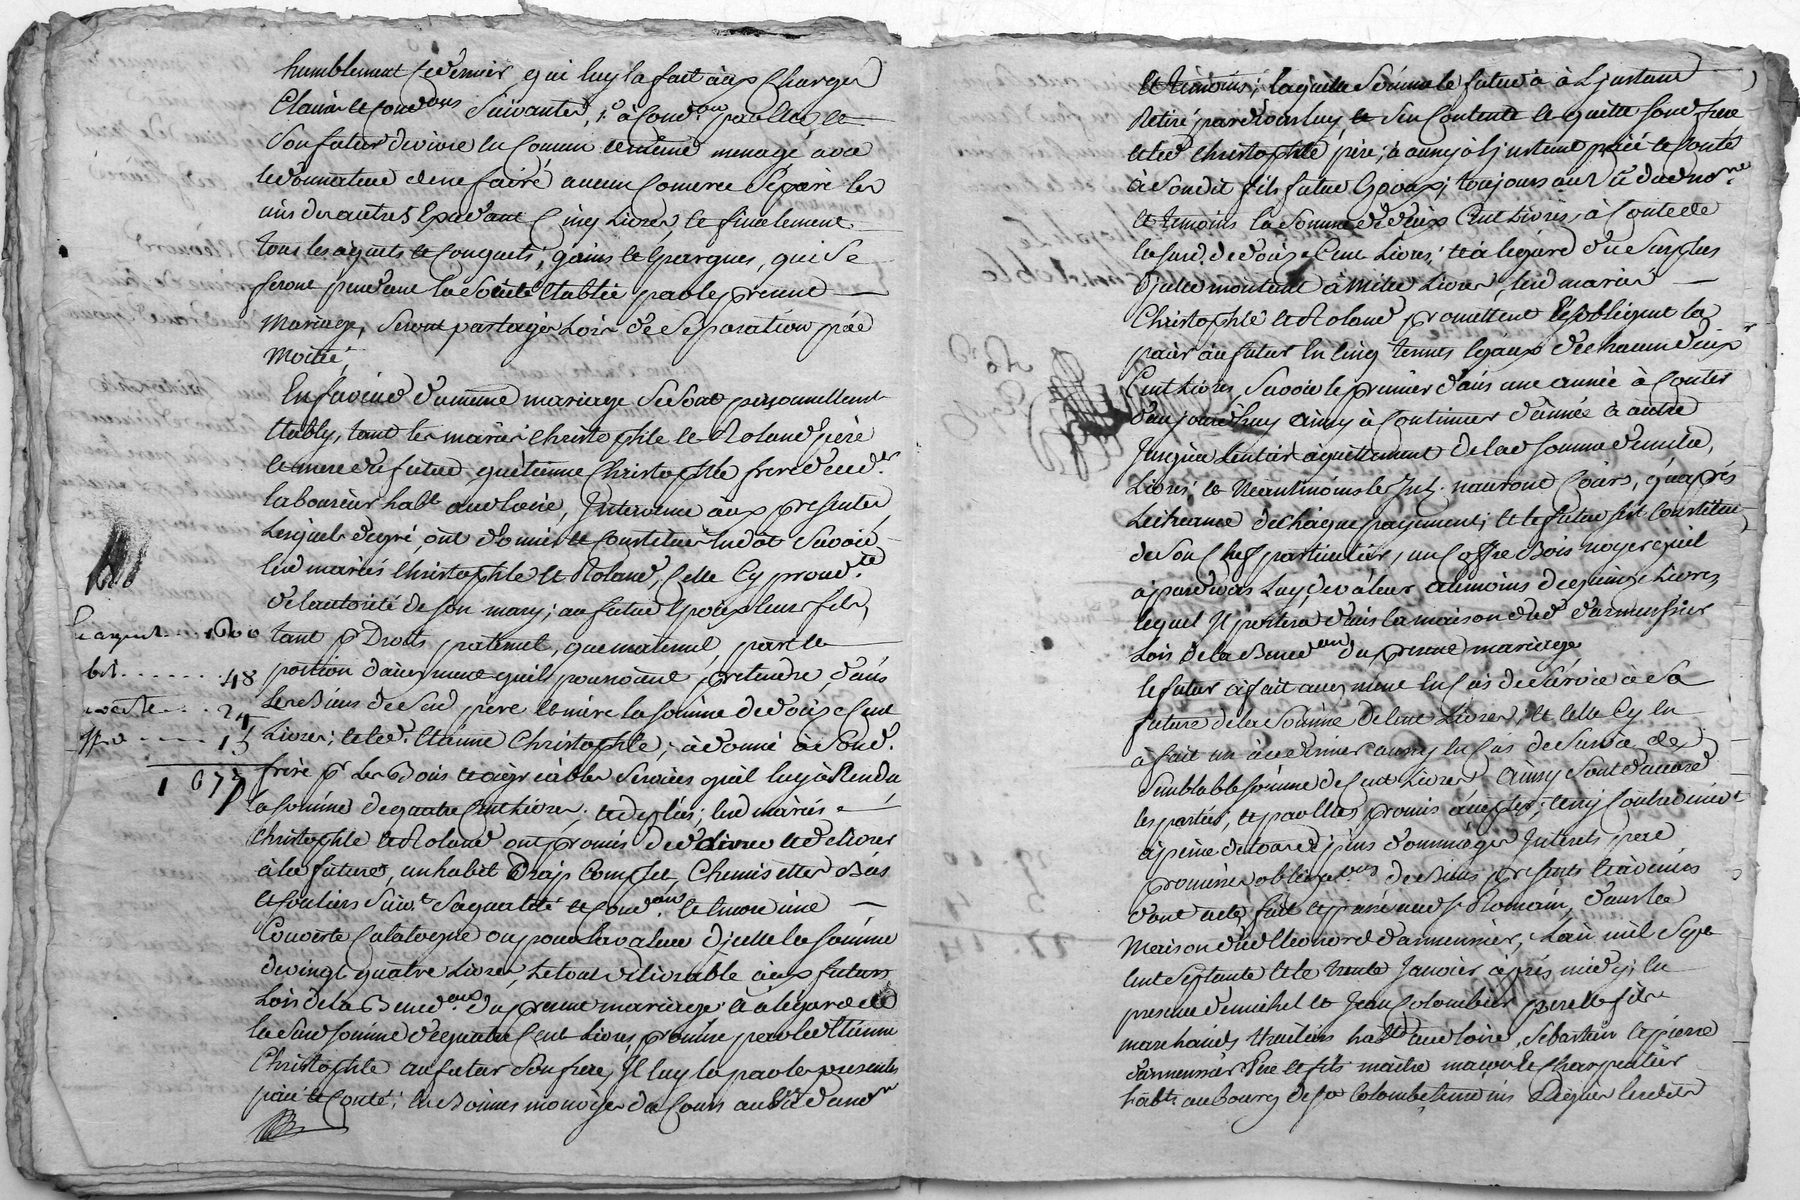 humblement remercier qui luy la fait aux Charges
Clauses et Condons Suivantes, 1° à Condon par elle et
Son futur de vivre en Commun et même menage avec
le donnateur et de ne faire aucun Comerce Séparé les
uns des autres Excedant Cinq Livres et finalement
tous les aquets et Conquets, gains et Epargnes, qui Se
feront pendant la Société Etablie par le present
Mariage, Seront partagés Lors de Séparation par
Moitié,
En faveur du meme mariage Se Sont personnellemt
Etably, tant les mariés Christophle et Roland père
et mere du futur qu'etienne Christophle frere dud.
laboureur habt audt loire, Intervenu aux presentes
Lesquels de gré, ont donné et Constitué en dot Savoir
lesd mariés Christophle et Roland, Celle Cy procedte
de l'autorité de Son mary; au futur Epoux leur fils,
tant pr Droits paternels, que maternels, part et
portion d'augment qu'il pourroient pretendre, dans
les Biens de Sesd père et mère la Somme de douze Cent
Livres; et led. Etienne Christophle, à donné à Sond.
frere pr les Bons et agréables Services qu'il luy à Rendu
la Somme de quatre Cent Livres; et de plus; lesd mariés
Christophle et Roland ont promis de delivrer
à la future, un habit Drap Complet, Chemisettes Bas
et Souliers Suivt Sa qualité et Condon, et Encore une
Couverte Catalogne ou pour la valeur D'jcelle la Somme
de vingt quatre Livres, Le tout délivrable aux futurs
Lors de la Benedon du present mariage; et à l'égard de
la Susd Somme de quatre Cent Livres promise par led Etienne
Christophle au futur Son frere, Il luy la par les presentes
païé et Conté; en Bonnes monoyes du Cours au Vû du not
argent . . . 1600
. . . . . . . 48
. . . . 24
. . . . 15
1 677
et témoins; laquelle Somme le futur à à L'jnstant
Retiré pardevers luy, et S'en Contente et quitte Sond. frere
et led Christophle père; à aussy à L'jnstant païé et Conté
à Sondit fils futur Epoux; toujours au Vû dud nore
et témoins la Somme de deux Cent Livres, à Conte de
la Susd. de douze Cent Livres; et à l'égard du Surplus
D'jcelle montant à mille Livres, lesd mariés
Christophle et Roland promettent et S'obligent la
païer au futur en Cinq termes Egaux de chacun deux
Cent Livres, Savoir le premier dans une année à Conter
d'aujourd'huy ainsy à Continuer d'année à autre
Jusqu'à L'entier aquittement de lad Somme de mille
Livres; et Neantmoins les Int. n'auront Cours, qu'après
L'echeance de chaque payement; et le futur S'est Constitué
de Son Chef particulier, un Coffre Bois noyer qu'il
à pardevers Luy, de valeur au moins de quinze Livres
lequel Il portera dans la maison dud d'armensier
Lors de la Benedon du present mariage
le futur à fait augment en Cas de Survie à Sa
future de la Somme de Cent Livres, et Celle Cy en
à fait un au dernier aussy en Cas de Survie de
Semblable Somme de Cent Livres Ainsy Sont d'accord
les parties, et par elles promis d'accepter, tenir Contrevenir
à peine de tous depens Dommages Interets par
promesses obligaons de Biens presents et à venir
dont acte fait et passé aud St. Romain, dans la
Maison dud Eleonord d'armensier, L'an mil Sept
Cent Septante et le trente Janvier après midy; en
presence de michel et Jean Colombier pere et fils
marchands Traiteurs habts aud loire, Sebastien et pierre
d'armensier Pere et fils maître maçon et Charpentier
habts au bourg de Ste Colombe, temoins Requis lesdits